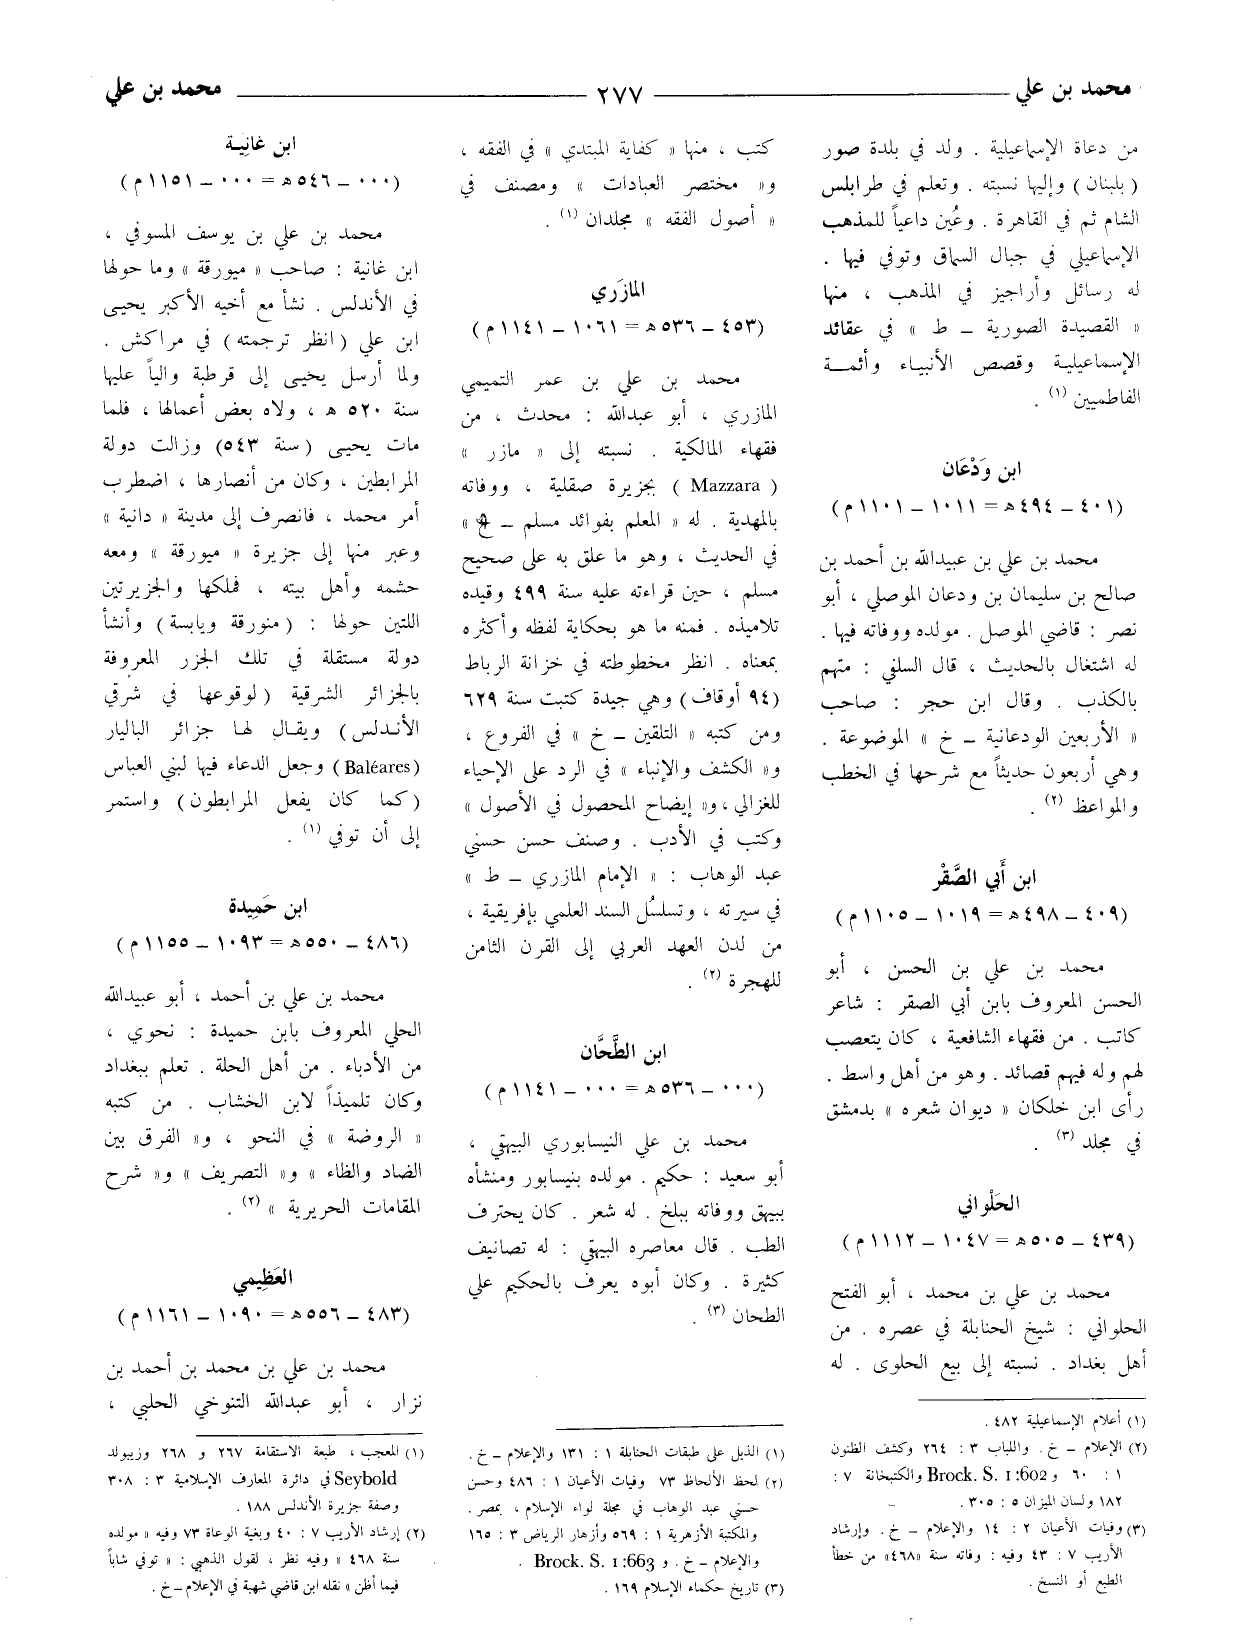 محمد بن علي ٢٧٧ محمد بن علي
من دعاة الإسماعيلية . ولد في بلدة صور
( بلبنان ) وإليها نسبته . وتعلم في طرابلس
الشام ثم في القاهرة . وعُين داعياً للمذهب
الإسماعيلي في جبال السماق وتوفي فيها .
له رسائل وأراجيز في المذهب ، منها
« القصيدة الصورية – ط » في عقائد
الإسماعيلية وقصص الأنبياء وأئمة
الفاطميين (١) .
ابن وَدْعَان
(٤٠١ – ٤٩٤ هـ = ١٠١١ – ١١٠١ م)
محمد بن علي بن عبيدالله بن أحمد بن
صالح بن سليمان بن ودعان الموصلي ، أبو
نصر : قاضي الموصل . مولده ووفاته فيها .
له اشتغال بالحديث ، قال السلفي : متهم
بالكذب . وقال ابن حجر : صاحب
« الأربعين الودعانية – خ » الموضوعة .
وهي أربعون حديثاً مع شرحها في الخطب
والمواعظ (٢) .
ابن أَبي الصَّقْر
(٤٠٩ – ٤٩٨ هـ = ١٠١٩ – ١١٠٥ م)
محمد بن علي بن الحسن ، أبو
الحسن المعروف بابن أبي الصقر : شاعر
كاتب . من فقهاء الشافعية ، كان يتعصب
لهم وله فيهم قصائد . وهو من أهل واسط .
رأى ابن خلكان « ديوان شعره » بدمشق
في مجلد (٣) .
الحَلْواني
(٤٣٩ – ٥٠٥ هـ = ١٠٤٧ – ١١١٢ م)
محمد بن علي بن محمد ، أبو الفتح
الحلواني : شيخ الحنابلة في عصره . من
أهل بغداد . نسبته إلى بيع الحلوى . له
(١) أعلام الإسماعيلية ٤٨٢ .
(٢) الإعلام – خ . واللباب ٣ : ٢٦٤ وكشف الظنون
١ : ٦٠ و Brock. S. 1:602 والكتبخانة ٧ :
١٨٢ ولسان الميزان ٥ : ٣٠٥ .
(٣) وفيات الأعيان ٢ : ١٤ والإعلام – خ . وإرشاد
الأريب ٧ : ٤٣ وفيه : وفاته سنة «٤٦٨» من خطأ
الطبع أو النسخ .
كتب ، منها « كفاية المبتدي » في الفقه ،
و« مختصر العبادات » ومصنف في
« أصول الفقه » مجلدان (١) .
المازَري
(٤٥٣ – ٥٣٦ هـ = ١٠٦١ – ١١٤١ م)
محمد بن علي بن عمر التميمي
المازري ، أبو عبدالله : محدث ، من
فقهاء المالكية . نسبته إلى « مازر »
( Mazzara ) بجزيرة صقلية ، ووفاته
بالمهدية . له « المعلم بفوائد مسلم – »
في الحديث ، وهو ما علق به على صحيح
مسلم ، حين قراءته عليه سنة ٤٩٩ وقيده
تلاميذه . فمنه ما هو بحكاية لفظه وأكثره
بمعناه . انظر مخطوطته في خزانة الرباط
(٩٤ أوقاف) وهي جيدة كتبت سنة ٦٢٩
ومن كتبه « التلقين – خ » في الفروع ،
و« الكشف والإنباء » في الرد على الإحياء
للغزالي ، و« إيضاح المحصول في الأصول »
وكتب في الأدب . وصنف حسن حسني
عبد الوهاب : « الإمام المازري – ط »
في سيرته ، وتسلسُل السند العلمي بإفريقية ،
من لدن العهد العربي إلى القرن الثامن
للهجرة (٢) .
ابن الطَّحَّان
(٠٠٠ – ٥٣٦ هـ = ٠٠٠ – ١١٤١ م)
محمد بن علي النيسابوري البيهقي ،
أبو سعيد : حكيم . مولده بنيسابور ومنشأه
ببيهق ووفاته ببلخ . له شعر . كان يحترف
الطب . قال معاصره البيهقي : له تصانيف
كثيرة . وكان أبوه يعرف بالحكيم علي
الطحان (٣) .
(١) الذيل على طبقات الحنابلة ١ : ١٣١ والإعلام – خ .
(٢) لحظ الألحاظ ٧٣ وفيات الأعيان ١ : ٤٨٦ وحسن
حسني عبد الوهاب في مجلة لواء الإسلام ، بمصر .
والمكتبة الأزهرية ١ : ٥٦٩ وأزهار الرياض ٣ : ١٦٥
والإعلام – خ . و Brock. S. 1:663 .
(٣) تاريخ حكماء الإسلام ١٦٩ .
ابن غانِيَة
(٠٠٠ – ٥٤٦ هـ = ٠٠٠ – ١١٥١ م)
محمد بن علي بن يوسف المسوفي ،
ابن غانية : صاحب « ميورقة » وما حولها
في الأندلس . نشأ مع أخيه الأكبر يحيى
ابن علي (انظر ترجمته) في مراكش .
ولما أرسل يحيى إلى قرطبة والياً عليها
سنة ٥٢٠ هـ ، ولاه بعض أعمالها ، فلما
مات يحيى ( سنة ٥٤٣) وزالت دولة
المرابطين ، وكان من أنصارها ، اضطرب
أمر محمد ، فانصرف إلى مدينة « دانية »
وعبر منها إلى جزيرة « ميورقة » ومعه
حشمه وأهل بيته ، فملكها والجزيرتين
اللتين حولها : (منورقة ويابسة) وأنشأ
دولة مستقلة في تلك الجزر المعروفة
بالجزائر الشرقية (لوقوعها في شرقي
الأندلس) ويقال لها جزائر الباليار
(Baléares) وجعل الدعاء فيها لبني العباس
(كما كان يفعل المرابطون) واستمر
إلى أن توفي (١) .
ابن حَمِيدة
(٤٨٦ – ٥٥٠ هـ = ١٠٩٣ – ١١٥٥ م)
محمد بن علي بن أحمد ، أبو عبيدالله
الحلي المعروف بابن حميدة : نحوي ،
من الأدباء . من أهل الحلة . تعلم ببغداد
وكان تلميذاً لابن الخشاب . من كتبه
« الروضة » في النحو ، و« الفرق بين
الضاد والظاء » و« التصريف » و« شرح
المقامات الحريرية » (٢) .
العَظِيمي
(٤٨٣ – ٥٥٦ هـ = ١٠٩٠ – ١١٦١ م)
محمد بن علي بن محمد بن أحمد بن
نزار ، أبو عبدالله التنوخي الحلبي ،
(١) المعجب ، طبعة الاستقامة ٢٦٧ و ٢٦٨ وزيبولد
Seybold في دائرة المعارف الإسلامية ٣ : ٣٠٨
وصفة جزيرة الأندلس ١٨٨ .
(٢) إرشاد الأريب ٧ : ٤٠ وبغية الوعاة ٧٣ وفيه « مولده
سنة ٤٦٨ » وفيه نظر ، لقول الذهبي : « توفي شاباً
فيما أظن » نقله ابن قاضي شهبة في الإعلام – خ .